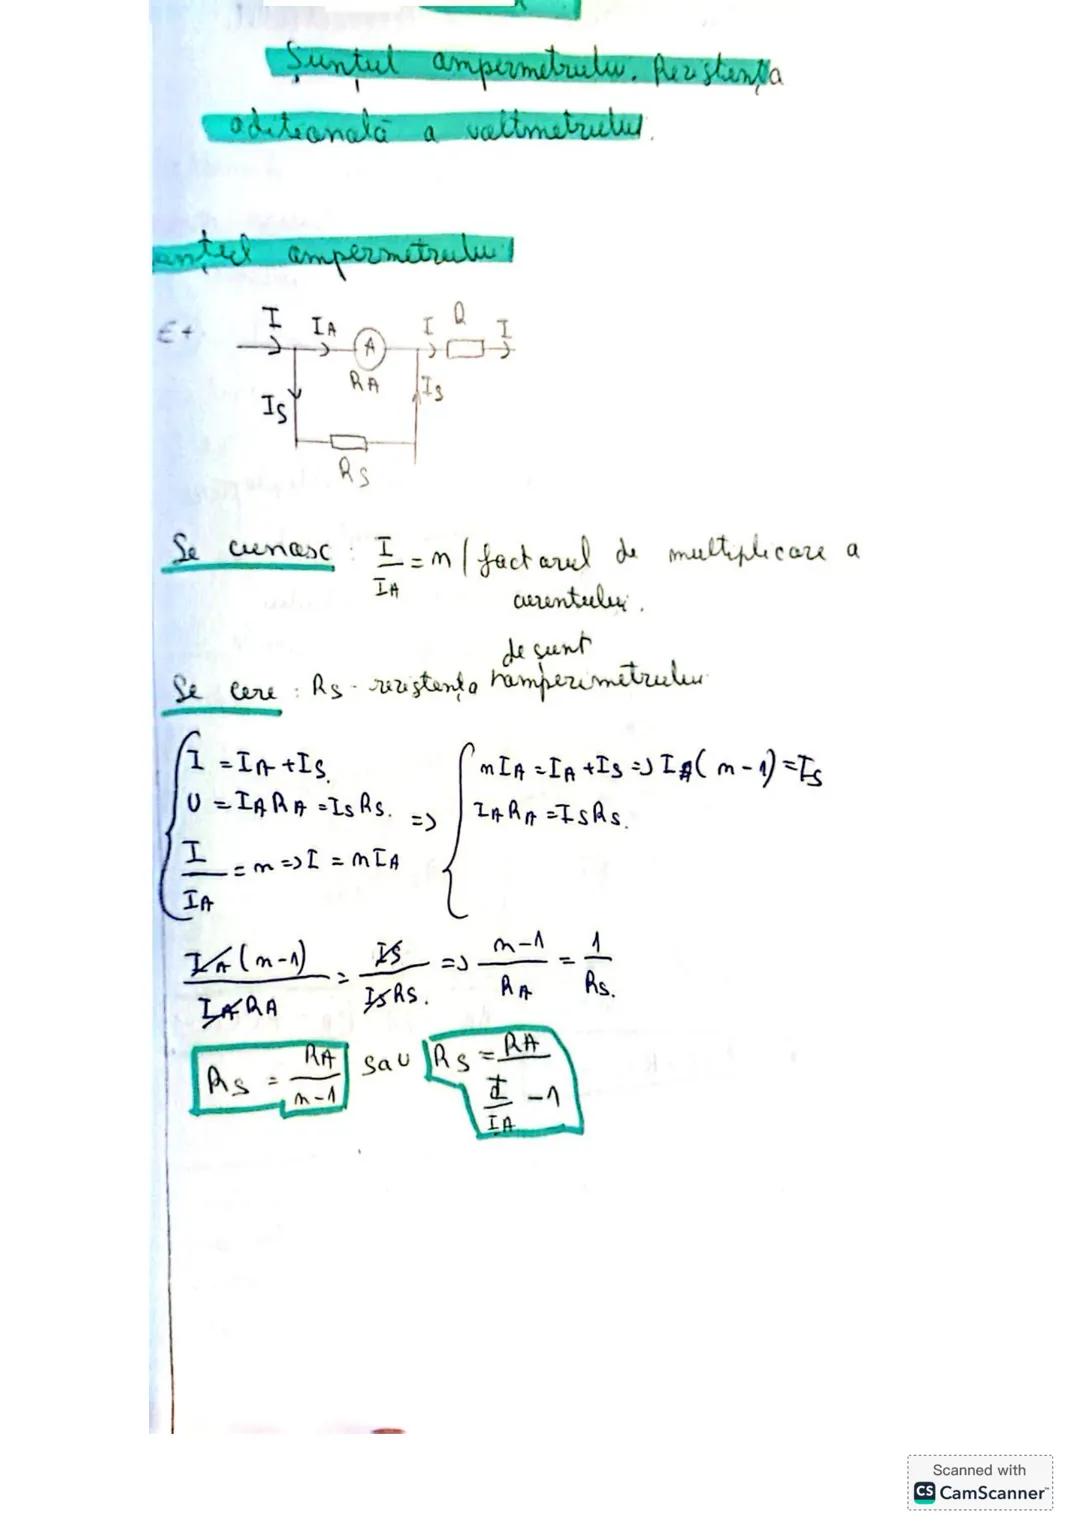 Șuntul ampermetrului. Rezistența
adițională a voltmetrului.
ampermetrului
E+
I IA A I R I
RA
IS IS
RS
Se cunosc : I/IA = n / factorul de multiplicare a
curentului.
de șunt
Se cere : Rs - rezistența ampermetrului
I = IA + IS.
U = IA RA = IS RS. =>
I/IA = n => I = nIA
nIA = IA + IS => IA(n-1) = IS
IA RA = IS RS.
IA(n-1)/IA RA = IS/IS RS. => n-1/RA = 1/RS.
RS = RA/n-1 sau RS = RA/I/IA -1
Scanned with
CS CamScanner